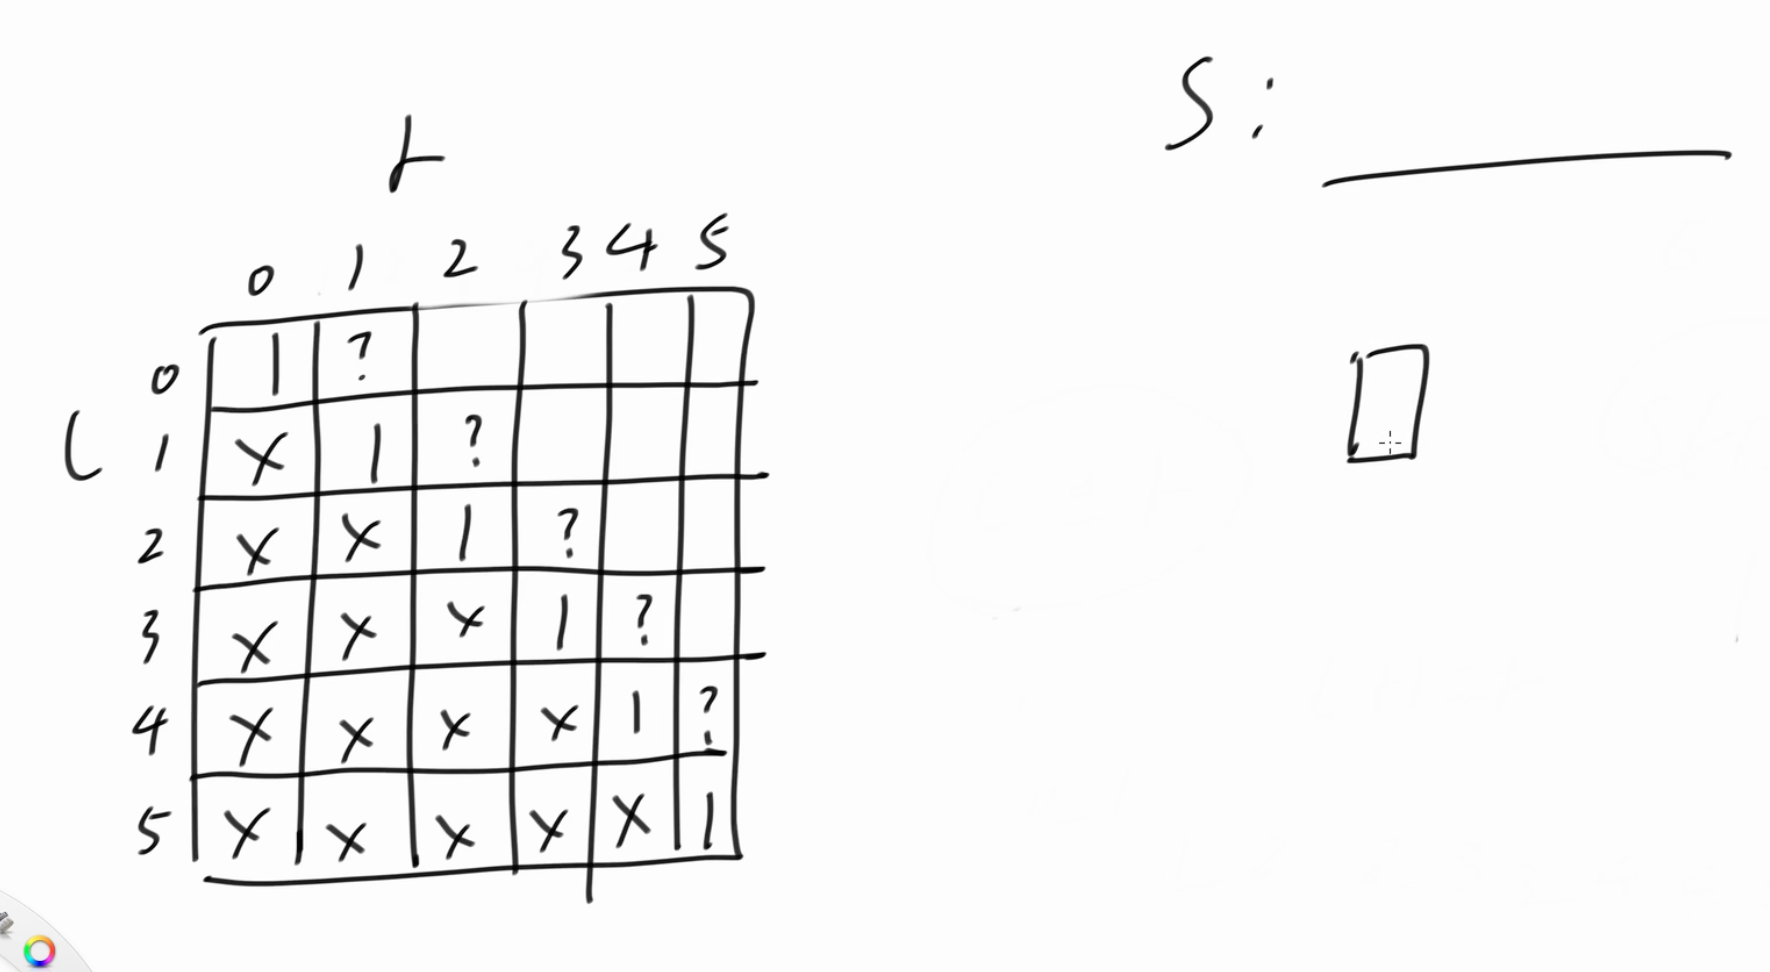 S:
r
0 1 2 3 4 5
0 1 ?
L 1 X 1 ?
2 X X 1 ?
3 X X X 1 ?
4 X X X X 1 ?
5 X X X X X 1